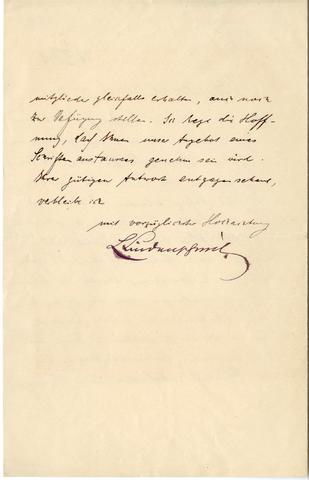 mitglieder gleichfalls erhalten, auch noch
zur Verfügung stellen. Ich hege die Hoff-
nung, daß Ihnen unser Angebot eines
Schriftenaustausches genehm sein wird.
Ihrer gütigen Antwort entgegensehend,
verbleibe ich
mit vorzüglicher Hochachtung
L Lindenschmit